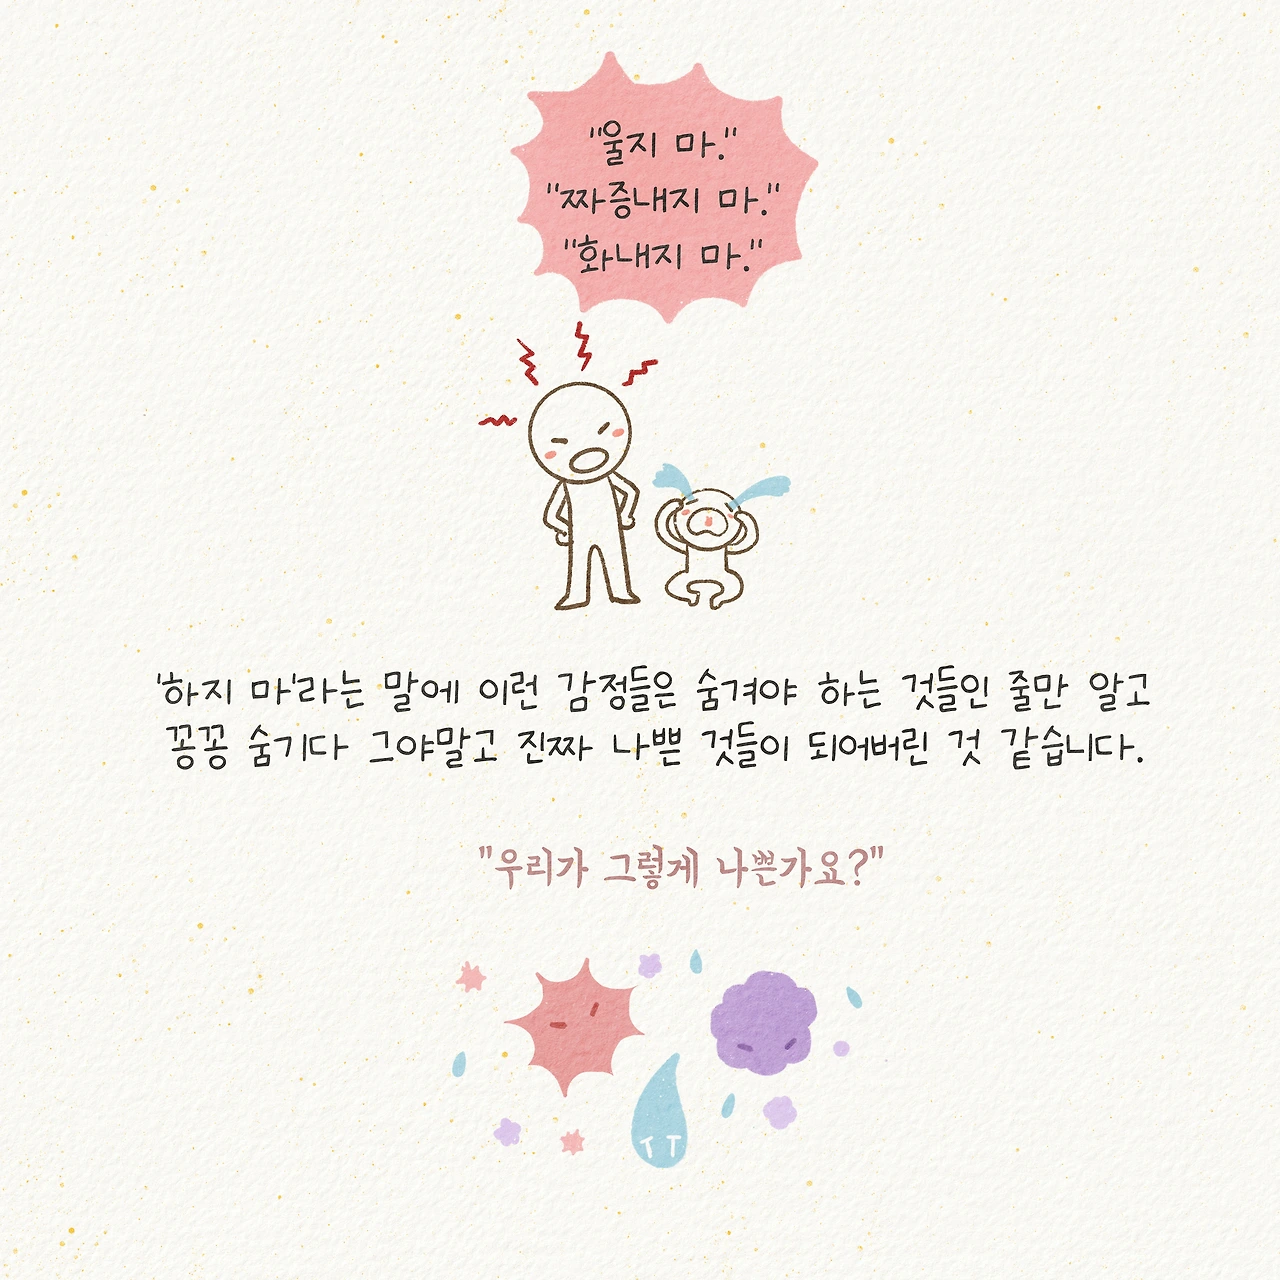 "울지 마."
"짜증내지 마."
"화내지 마."
'하지 마'라는 말에 이런 감정들은 숨겨야 하는 것들인 줄만 알고
꽁꽁 숨기다 그야말고 진짜 나쁜 것들이 되어버린 것 같습니다.
"우리가 그렇게 나쁜가요?"
T T